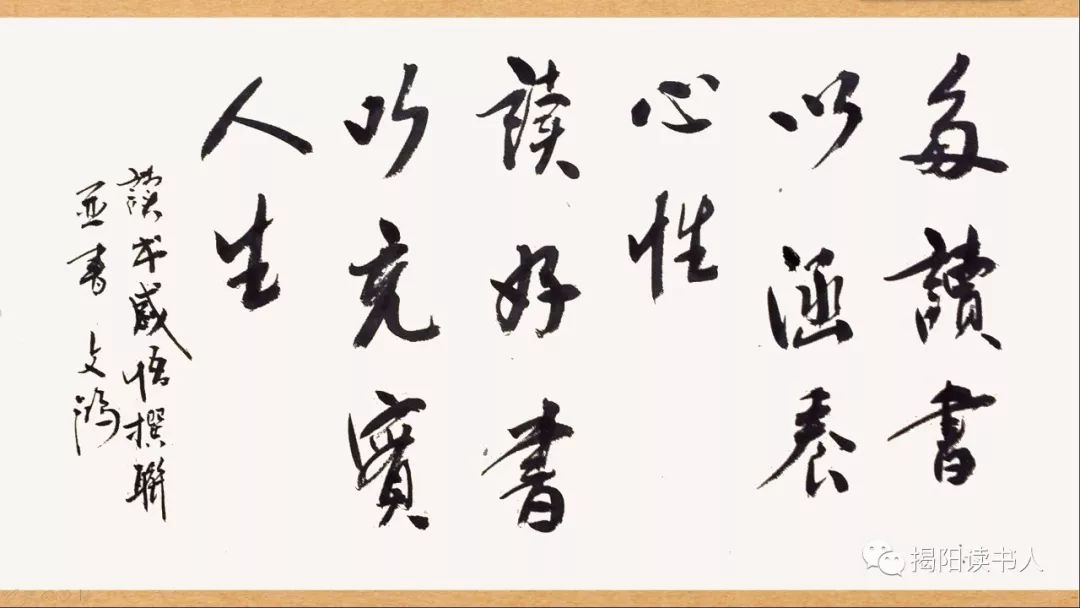 多讀書
以涵養
心性
讀好書
以充實
人生
讀書感悟撰聯
並書 文鴻
揭阳读书人